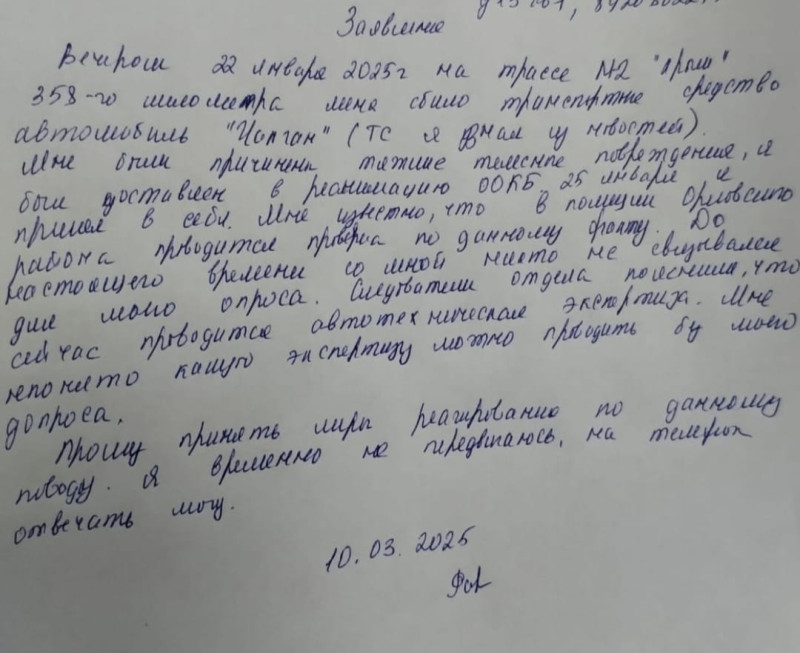 Заявление
Вечером 22 января 2025г на трассе М2 "Крым"
358-го километра меня сбило транспортное средство
автомобиль "Чанган" (ТС я узнал из новостей).
Мне были причинены тяжкие телесное повреждения, я
был доставлен в реанимацию ООКБ. 25 января я
пришел в себя. Мне известно, что в полиции Орловского
района проводится проверка по данному факту. До
настоящего времени со мной никто не связывался
для моего опроса. Следователи отдела пояснили, что
сейчас проводится автотехническая экспертиза. Мне
непонятно какую экспертизу можно проводить без моего
допроса.
Прошу принять меры реагированию по данному
поводу. Я временно не передвигаюсь, на телефон
отвечать могу.
10.03.2025